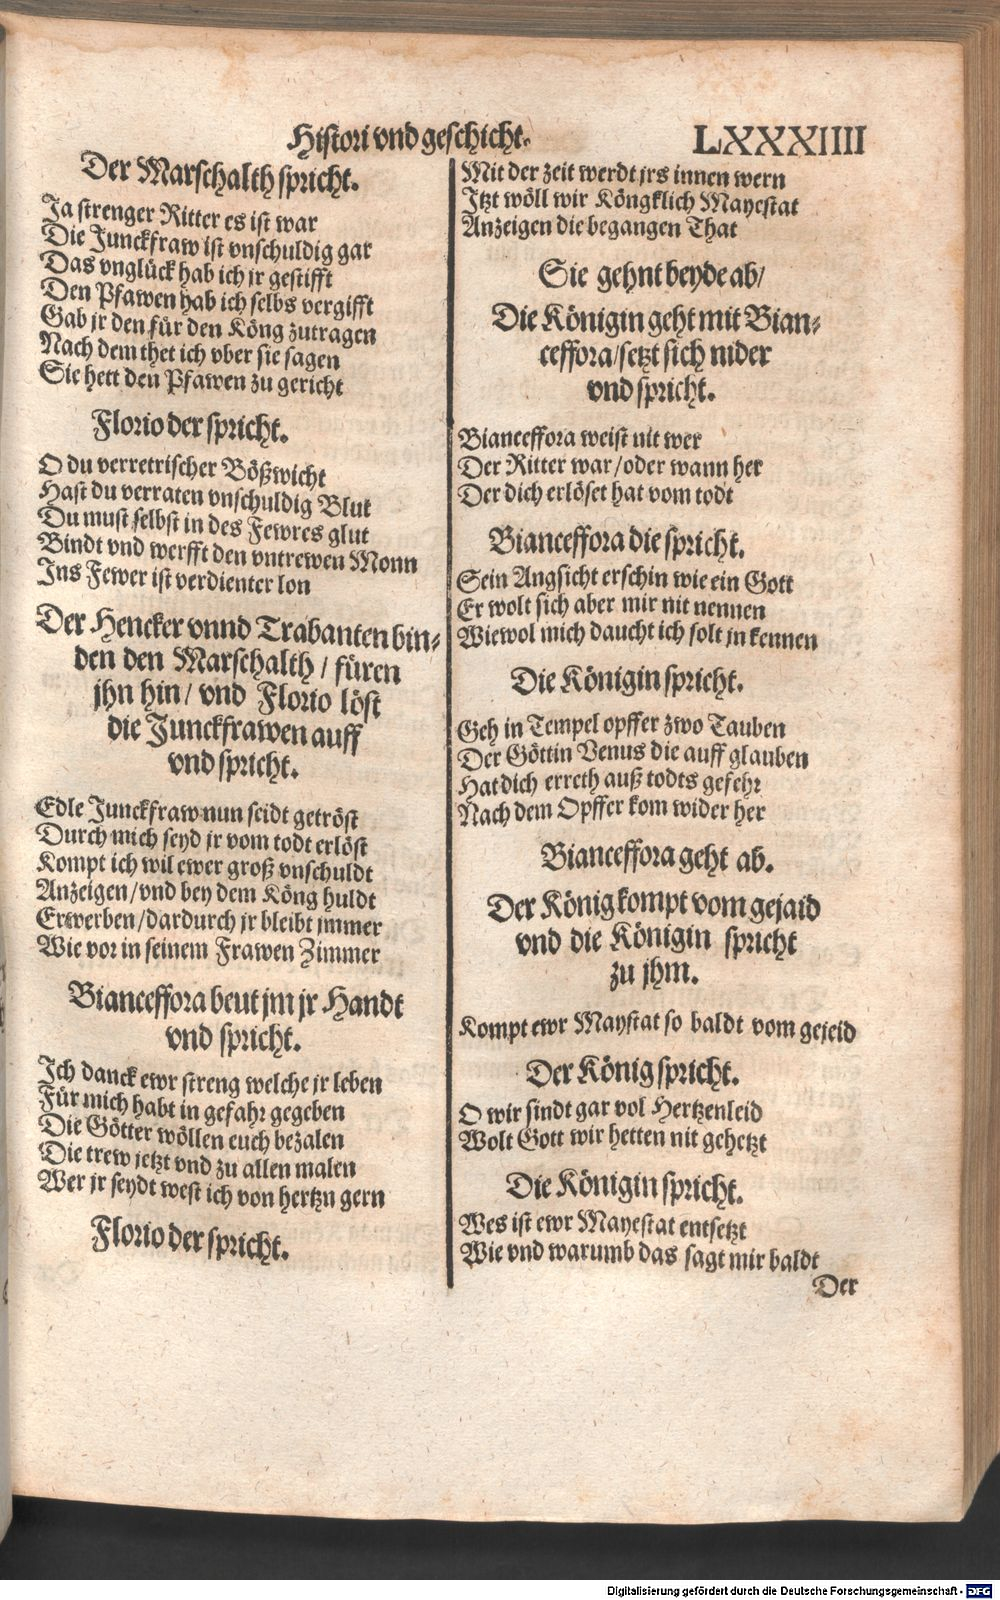 Histori vnd geschicht.
LXXXIIII
Der Marschalth spricht.
Ja strenger Ritter es ist war
Die Junckfraw ist vnschuldig gar
Das vnglück hab ich jr gestifft
Den Pfawen hab ich selbs vergifft
Gab jr den für den Köng zutragen
Nach dem thet ich vber sie sagen
Sie hett den Pfawen zu gericht
Florio der spricht.
O du verretrischer Bößwicht
Hast du verraten vnschuldig Blut
Du must selbst in des Fewres glut
Bindt vnd werfft den vntrewen Monn
Ins Fewer ist verdienter lon
Der Hencker vnnd Trabanten bin-
den den Marschalth / füren
jhn hin / vnd Florio löst
die Junckfrawen auff
vnd spricht.
Edle Junckfraw nun seidt getröst
Durch mich seyd jr vom todt erlöst
Kompt ich wil ewer groß vnschuldt
Anzeigen / vnd bey dem Köng huldt
Erwerben / dardurch jr bleibt jmmer
Wie vor in seinem Frawen Zimmer
Bianceffora beut jm jr Handt
vnd spricht.
Ich danck ewr streng welche jr leben
Für mich habt in gefahr gegeben
Die Götter wöllen euch bezalen
Die trew jetzt vnd zu allen malen
Wer jr seydt west ich von hertzn gern
Florio der spricht.
Mit der zeit werdt jrs innen wern
Jtzt wöll wir Köngklich Mayestat
Anzeigen die begangen That
Sie gehnt beyde ab /
Die Königin geht mit Bian-
ceffora / setzt sich nider
vnd spricht.
Bianceffora weist nit wer
Der Ritter war / oder wann her
Der dich erlöset hat vom todt
Bianceffora die spricht.
Sein Angsicht erschin wie ein Gott
Er wolt sich aber mir nit nennen
Wiewol mich daucht ich solt jn kennen
Die Königin spricht.
Geh in Tempel opffer zwo Tauben
Der Göttin Venus die auff glauben
Hat dich erreth auß todts gefehr
Nach dem Opffer kom wider her
Bianceffora geht ab.
Der König kompt vom gejaid
vnd die Königin spricht
zu jhm.
Kompt ewr Maystat so baldt vom gejeid
Der König spricht.
O wir sindt gar vol Hertzenleid
Wolt Gott wir hetten nit gehetzt
Die Königin spricht.
Wes ist ewr Mayestat entsetzt
Wie vnd warumb das sagt mir baldt
Der
Digitalisierung gefördert durch die Deutsche Forschungsgemeinschaft - DFG